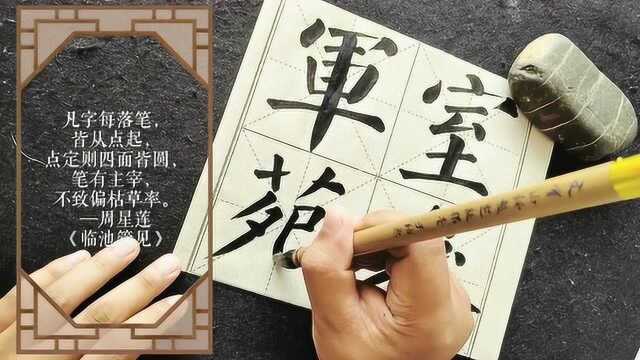 凡字每落笔，
皆从点起，
点定则四面皆圆，
笔有主宰，
不致偏枯草率。
—周星莲
《临池管见》
軍
室
苑